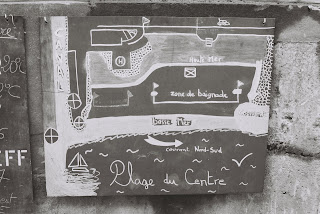 haute Mer
H
zone de baignade
basse Mer
courant Nord-Sud
Plage du Centre
EFF